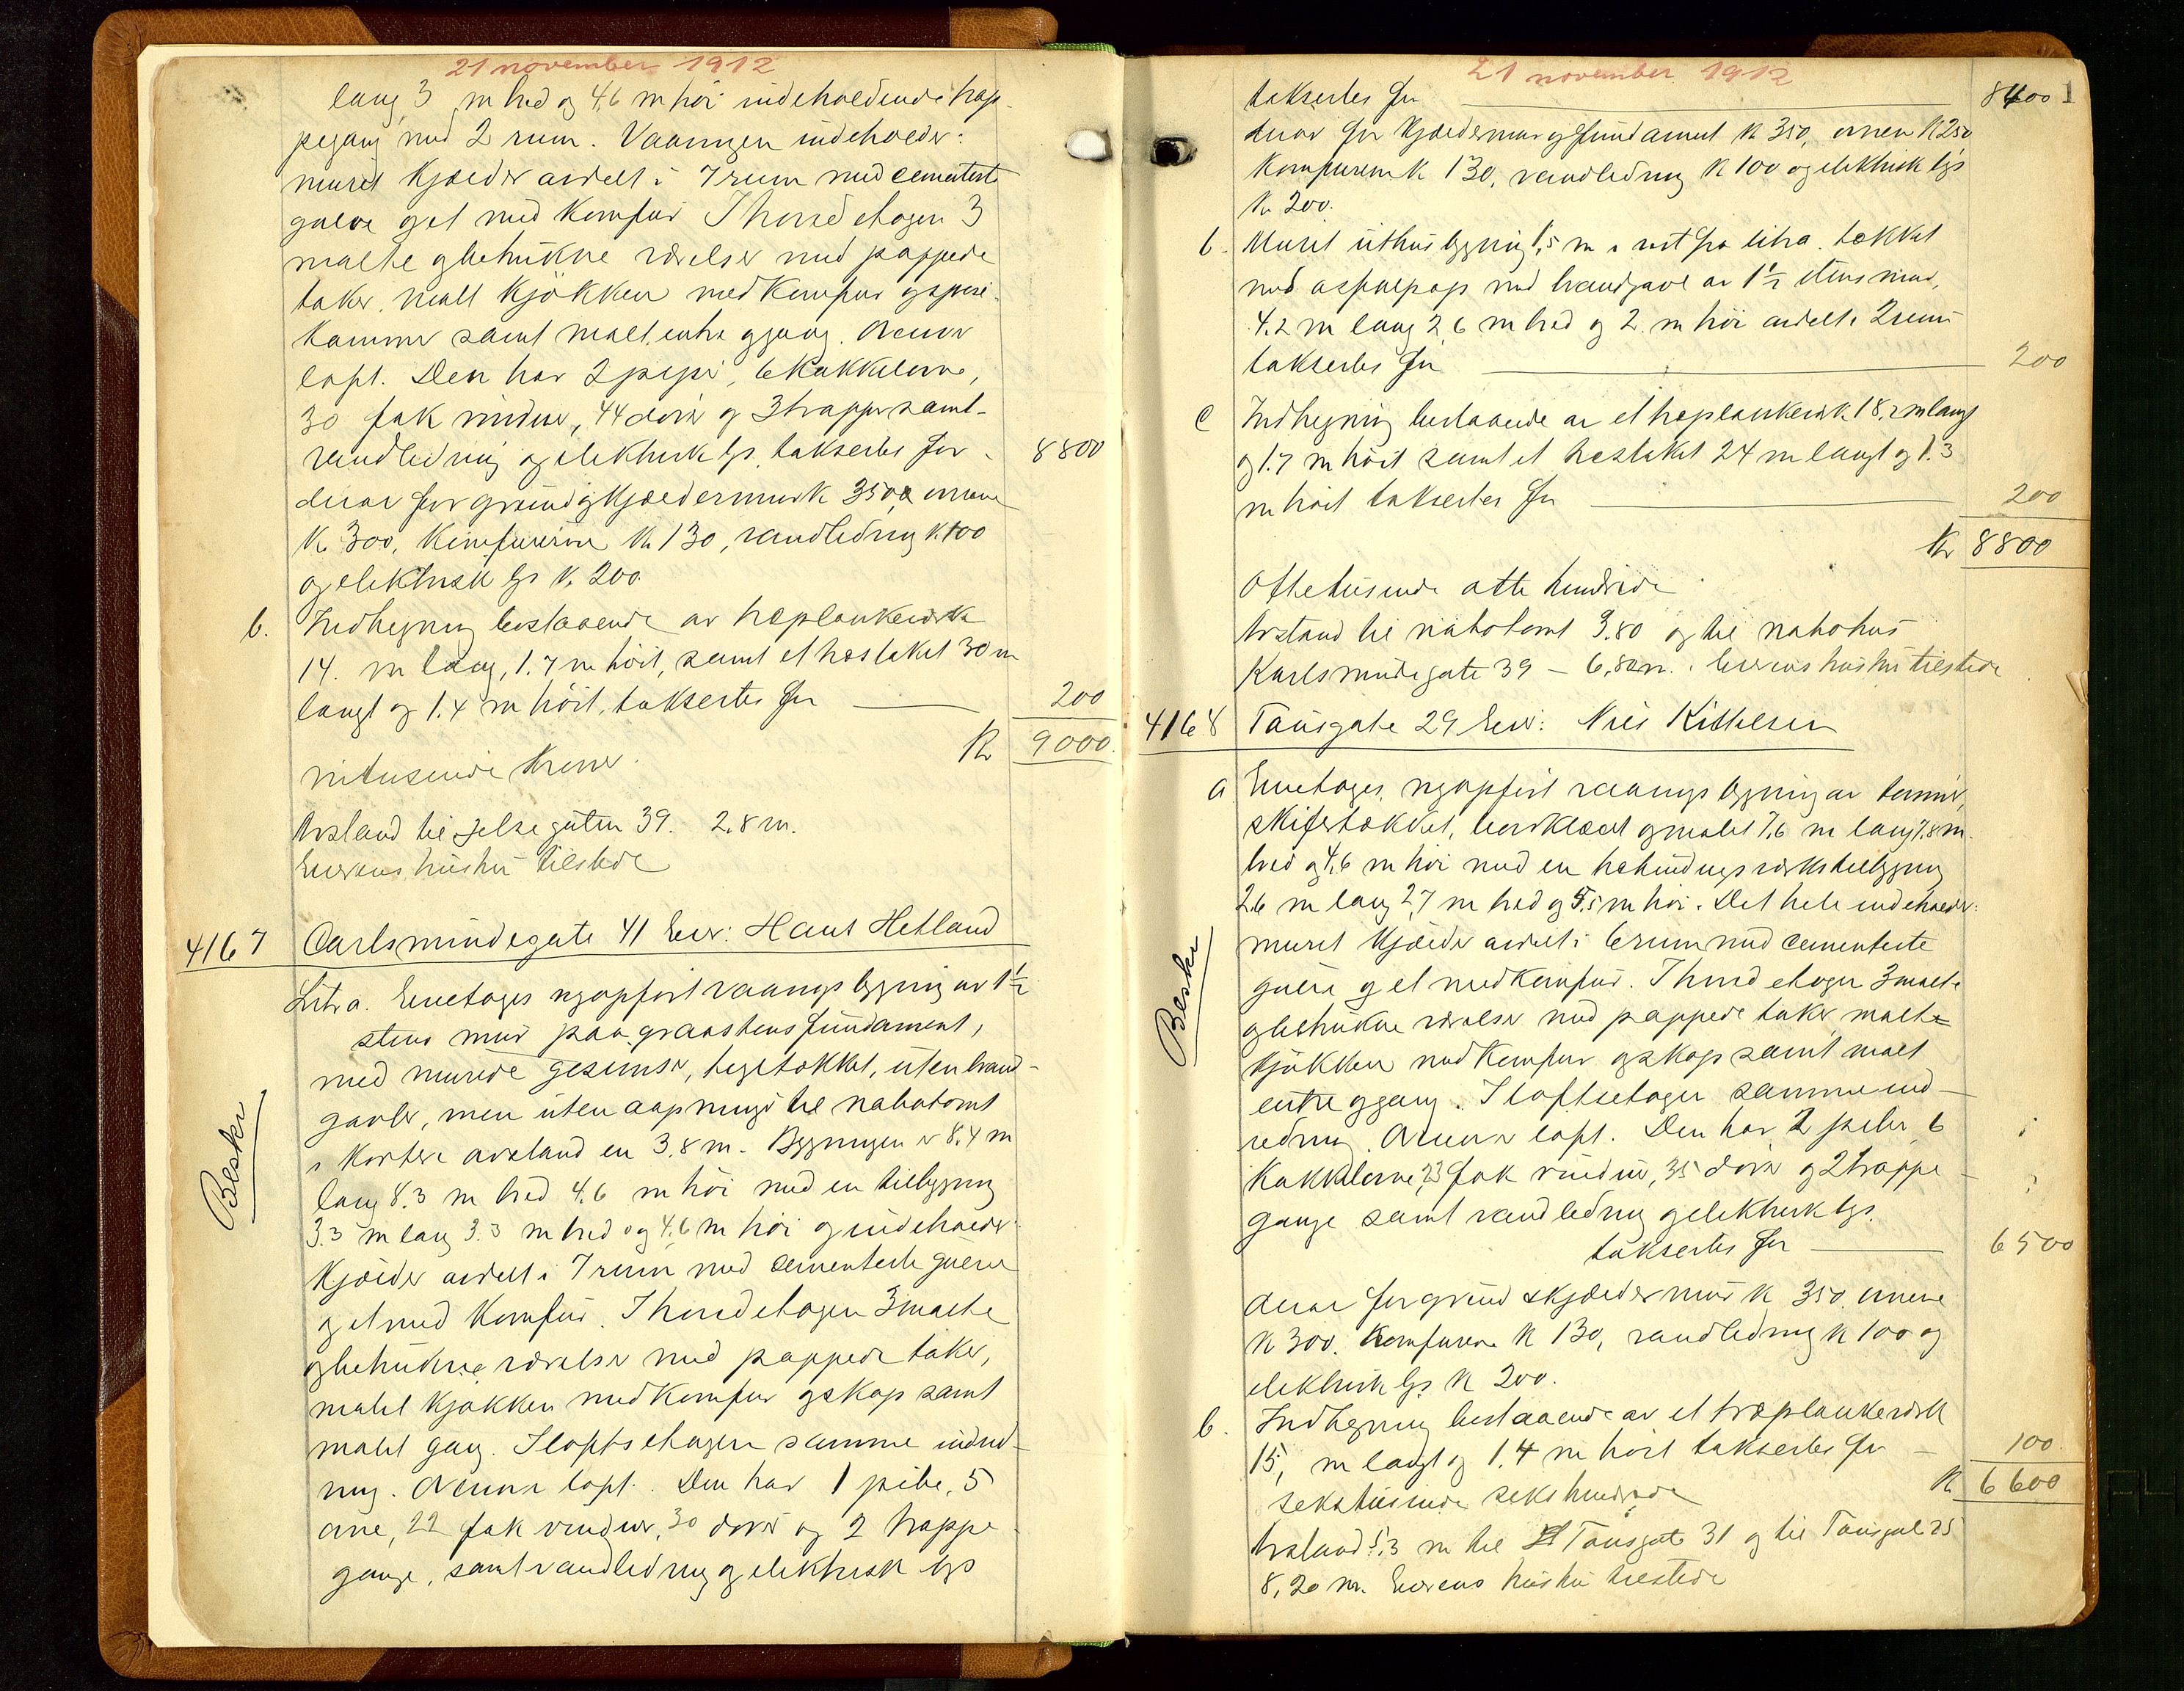 21 november 1912
lang, 3 m bred og 4,6 m høi indeholdende trap-
pegang med 2 rum. Vaaningen indeholder:
muret kjælder avdelt i 7 rum med cementerte
gulve og et med komfur I hovedetagen 3
malte og betrukne værelser med pappede
taker, malt kjøkken med komfur og spise-
kammer samt malt entre og gang. Ovenover
loft. Den har 2 piper, 6 kakkelovne,
30 fak vinduer, 44 dører og 3 trapper samt
vandledning og elektrisk lys takseres for - 8800
derav for grund og kjældermur k 350, ovnene
Kr 300, komfurerne Kr 130, vandledning k. 100
og elektrisk lys k. 200
b. Indhegning bestaaende av træplankeverk
14. m lang, 1.7 m høit, samt et træstaket 30 m
langt og 1.4 m høit, takseres for — 200
Kr 9000.
nitusende kroner.
Avstand til Jelsegaten 39. 2,8 m.
Eierens hustru tilstede
4167 Carlsmindegate 41 Eier: Hans Hetland
Beskr
Litr a. Enetages nyopført vaaningsbygning av 1½
stens mur paa graastensfundament,
med murede gesimser, teglstækket, uten brand-
gavler, men uten aapninger til nabotomt
i kortere avstand en 3,8 m. Bygningen er 8,4 m
lang 8.3 m bred 4.6 m høi med en tilbygning
3.3 m lang 3.3 m bred og 4.6 m høi og indeholder
kjælder avdelt i 7 rum med cementerte gulver
og et med komfur. I hovedetagen 3 malte
og betrukne værelser med pappede taker,
malet kjøkken med komfur og skap samt
malet gang. I loftsetagen samme indred-
ning. Ovenover loft. Den har 1 pibe, 5
ovne, 22 fak vinduer, 30 dører og 2 trappe-
gange, samt vandledning og elektrisk lys
21 november 1912
takseres for — 8400
derav for kjældermur og fundament k 350, ovnene k 250
komfurene k 130, vandledning k 100 og elektrisk lys
k. 200.
b. Muret uthusbygning 1,5 m i vest fra litra. tækket
med asfaltpap med brandgavl av 1½ stens mur,
4.2 m lang 2,6 m bred og 2. m høi avdelt i 2 rum
takseres for — 200
c Indhegning bestaaende av et træplankeverk 18,2 m langt
og 1.7 m høit samt et træstaket 24 m langt og 1.3
m høit takseres for — 200
Kr 8800
Ottetusende otte hundrede
Avstand til nabotomt 3.80 og til nabohus
Karlsmindegate 39 – 6,80 m. Eierens hustru tilstede
4168 Tausgate 29 Eier: Nils Kittelsen
Beskr
a Enetages, nyopført vaaningsbygning av tømmer,
skifertækket, bordklædt og malet 7,6 m lang 7,8 m
bred og 4,6 m høi med en utbindingsverkstilbygning
2,6 m lang 2,7 m bred og 5,5 m høi. Det hele indeholder:
muret kjælder avdelt i 6 rum med cementerte
gulve og et med komfur. I hovedetagen 3 malte
og betrukne værelser med pappede taker, malte
kjøkken med komfur og skap samt malt
entre og gang. I loftsetagen samme ind-
redning. Ovenover loft. Den har 2 piber 6
kakkelovne, 23 fak vinduer, 35 dører og 2 trappe-
gange samt vandledning og elektrisk lys.
takseres for — 6500
derav for grund & kjældermur k 350. ovnene
k 300. komfurene k 130, vandledning k 100 og
elektrisk lys k 200.
b. Indhegning bestaaende av et træplankeverk
15, m langt og 1.4 m høit takseres for – 100.
k 6600
sekstusinde sekshundrede
Avstand 5,3 m til Tausgate 31 og til Tausgate 25
8,20 m. Eierens hustru tilstede